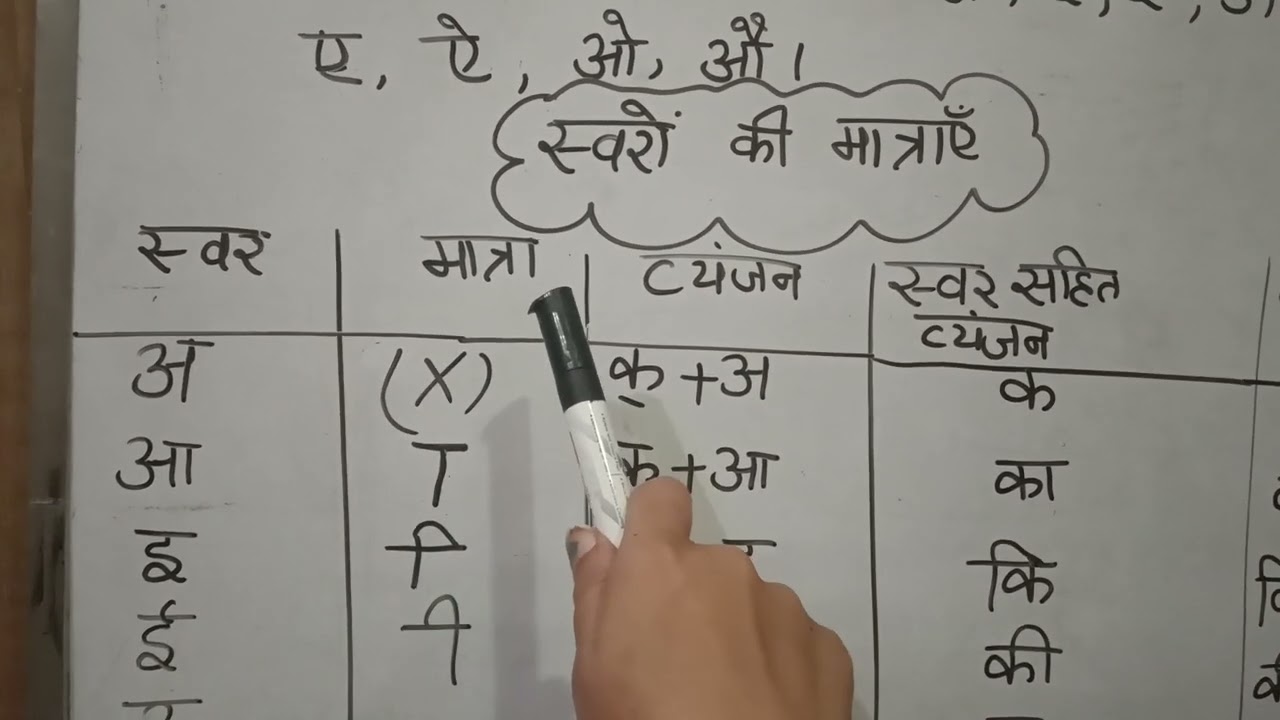 ए, ऐ, ओ, औ।
स्वरों की मात्राएँ
स्वर मात्रा व्यंजन स्वर सहित व्यंजन
अ (X) क + अ क
आ ा क + आ का
इ ि कि
ई ी की